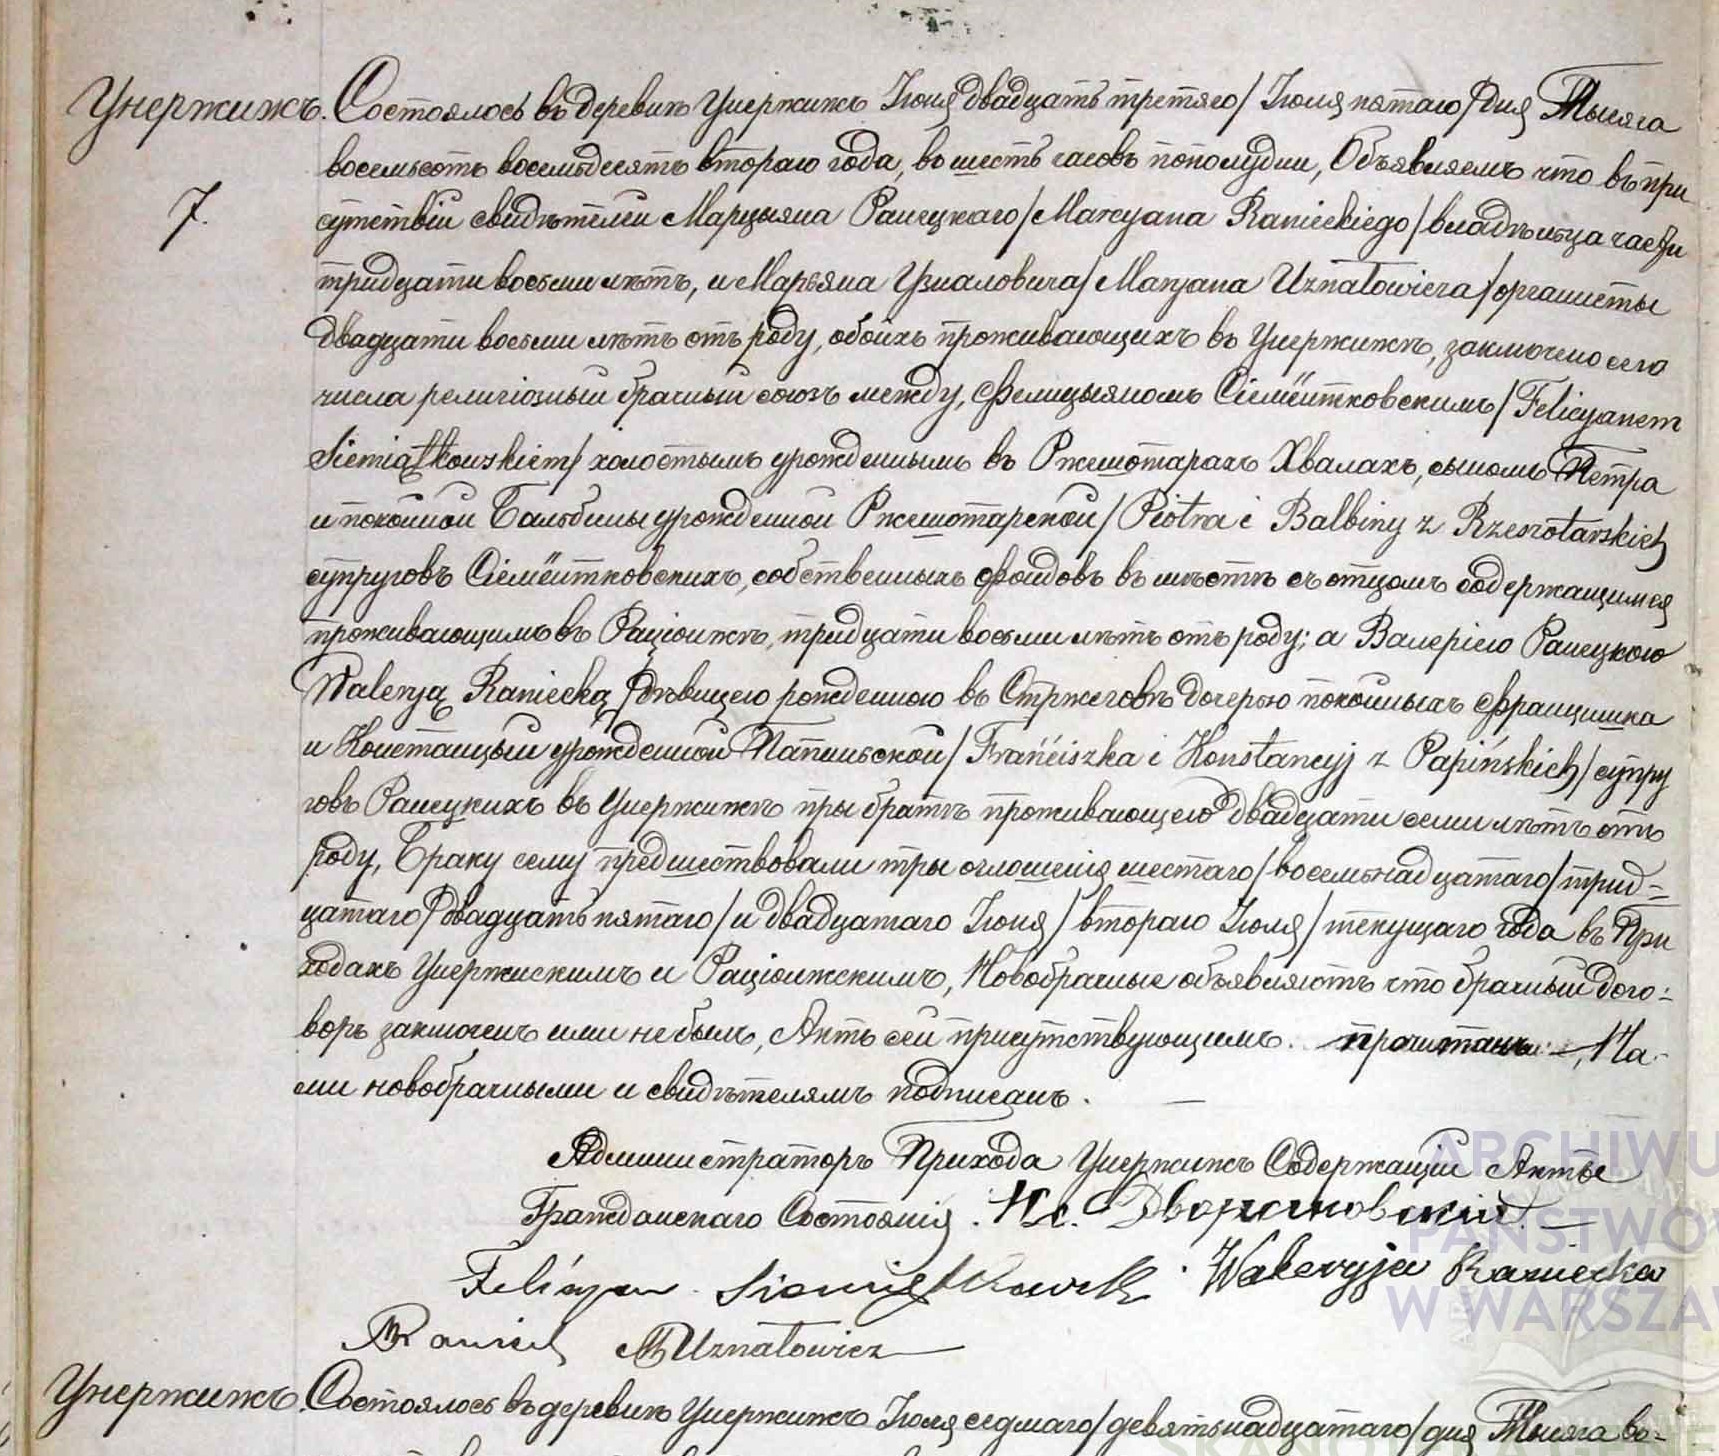 Унержижъ. Состоялось въ деревнѣ Унержижъ Іюня двадцать третяго / Іюля пятаго / дня Тысяча
восемьсотъ восемьдесятъ втораго года, въ шесть часовъ пополудни, Объявляемъ что въ при
7. сутствіи свидѣтелей Марцыяна Ранецкаго / Marcyana Ranieckiego / владѣльца части
тридцати восьми лѣтъ, и Марьяна Узналовича / Maryana Uznatowicza / органисты
двадцати восьми лѣтъ отъ роду, обоихъ проживающихъ въ Унержижѣ, заключено сего
числа религіозный брачный союзъ между, Фелицыяномъ Сіемёнтковскимъ / Felicyanem
Siemiątkowskiem / холостымъ урожденнымъ въ Ржешотарахъ Хвалахъ, сыномъ Петра
и покойной Бальбины урожденной Ржешотарской / Piotra i Balbiny z Rzeszotarskich
супруговъ Сіемёнтковскихъ, собственныхъ фондовъ въ мѣстѣ съ отцомъ содержащимся
проживающимъ въ Раціонжѣ, тридцати восьми лѣтъ отъ роду; а Валеріею Ранецкою
Waleryą Raniecką / дѣвицею рожденною въ Стржеговѣ дочерью покойныхъ Францишка
и Констанцыи урожденной Папиньской / Franciszka i Konstancyj z Papińskich / супру
говъ Ранецкихъ въ Унержижѣ при братѣ проживающею двадцати семи лѣтъ отъ
роду, Браку сему предшествовали тры оглошенія шестаго / восемьнадцатаго / трид=
цатаго / двадцать пятаго / и двадцатаго Іюня / втораго Іюля / текущаго года въ При
ходахъ Унержискимъ и Раціонжскимъ, Новобрачные объявляютъ что брачный дого=
воръ заключенъ ими не былъ, Актъ сей присутствующимъ. прочитанъ —, На-
ми новобрачными и свидѣтелямъ подписанъ. —
Администраторъ Прихода Унержижъ Содержащій Акты
Гражданскаго Состоянія. Кс. Дворжаковскій —
Felicyan Siemiątkowski. Waleryja Raniecka
M Raniecki M Uznatowicz
Унержижъ. Состоялось въ деревнѣ Унержижъ Іюля седмаго / девятьнадцатаго / дня Тысяча во=
ARCHIWU
PAŃSTWOW
W WARSZAW